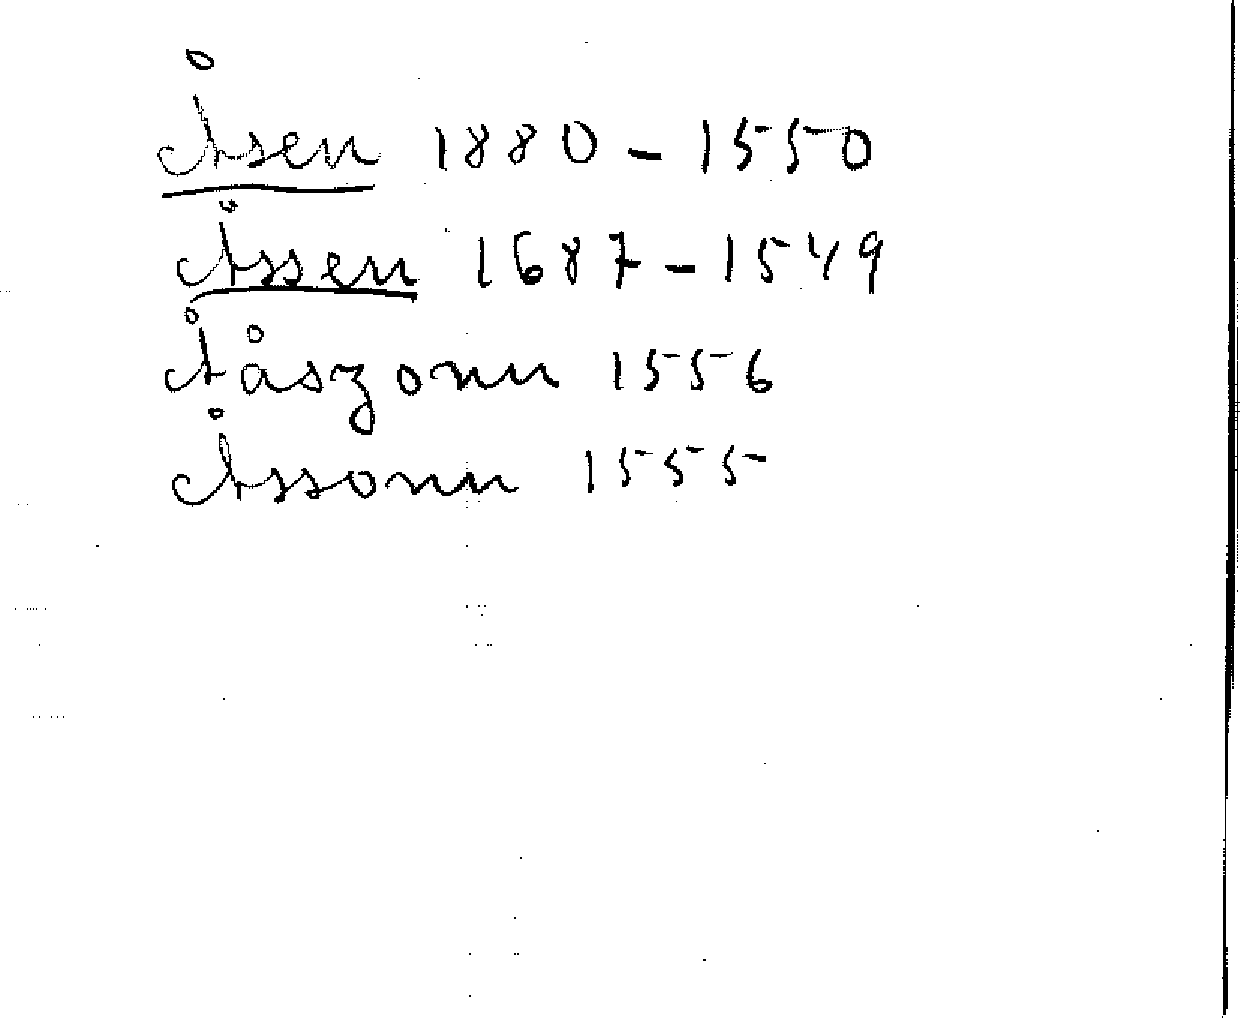 Åsen 1880 - 1550
Åssen 1687 - 1549
Ååszonn 1556
Åssonn 1555